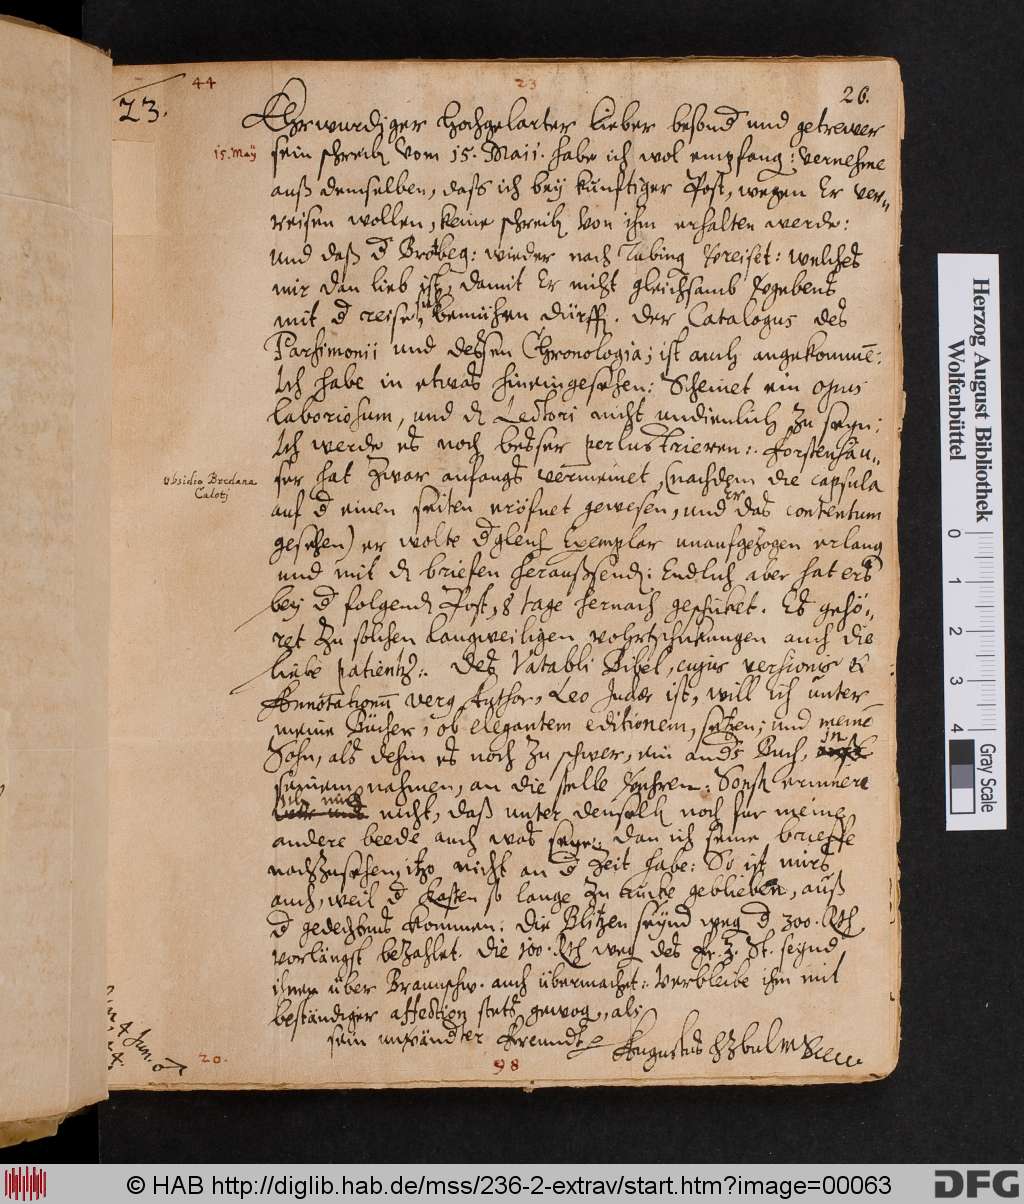 44
23
23.
26.
Ehrwurdiger Hochgelarter lieber besond und getrewer
15. Maÿ
sein schreib vom 15. Maii. habe ich wol empfang: vernehme
auß demselben, daß ich bey kunftiger Post, wegen Er ver-
reisen wollen, keine schreib von ihm erhalten werde:
und daß d wieder nach Tubing welches
mir dan lieb ist, damit Er nicht gleichsamb
mit d reise sich bemühen dürff. Der Catalogus des
Parsimonii und dessen Chronologia; ist auch angekomme:
Ich habe in etwas hineingesehen: Scheinet ein opus
laboriosum, und d Lectori nicht undienlich zu seyn:
Ich werde es noch besser perlustrieren: Forstenhäu-
obsidio Bredana
Caloti
ser hat zwar anfangs vermeinet, (nachdem die capsula
auf d einen seiten eröfnet gewesen, und er das contentum
gesehen) er wolte dgleich Exemplar unaufgezogen erlang
und mit d briefen heraußsend: Endlich aber hat ers
bey d folgend Post, 8 tage hernach geschicket. Es gehö-
ret zu solchen langweiligen auch die
liebe patientz: Des Vatabli Bibel, cujus versionis &
Annotationu Author, Leo Judæ ist, will ich unter
meine Bücher, ob elegantem editionem, setzen; und meine
Sohn, als dehm es noch zu schwer, ein ands Buch, in
seinem nahmen, an die stelle Sonst erinnere
ich mich nicht, daß unter denselb noch fur meine
andere beede auch was seye: dan ich seine brieffe
nachzusehen, itzo nicht an d Zeit habe: So ist mirs
auch, weil d kasten so lange zu rucke geblieben, auß
d gedechtnis kommen: Die seynd weg d 300. Rth
vorlängst bezahlet. Die 100. Rth weg des St. seynd
ihme über Braunschw. auch übermachet: Verbleibe ihm mit
beständiger affection stets gewog, als
sein Freund
Augustus
4 Jun.
20.
98
Herzog August Bibliothek
Wolfenbüttel
0 1 2 3 4
Gray Scale
© HAB http://diglib.hab.de/mss/236-2-extrav/start.htm?image=00063
DFG